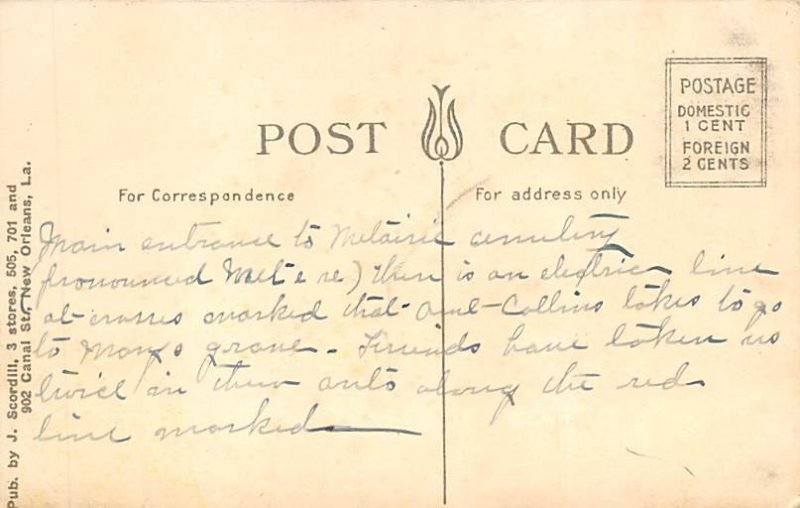 POST CARD
POSTAGE
DOMESTIC
1 CENT
FOREIGN
2 CENTS
For Correspondence
For address only
Pub. by J. Scordill, 3 stores, 505, 701 and
902 Canal St., New Orleans, La.
Main entrance to Metairie cemetery
pronounced Met e re) there is an electric line
at crosses marked that Collins takes to go
to grave - Friends have taken us
twice in their auto along the red
line marked